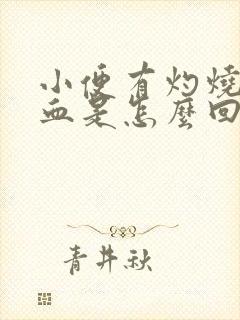 小便有灼燒
血是怎麼回
青井秋